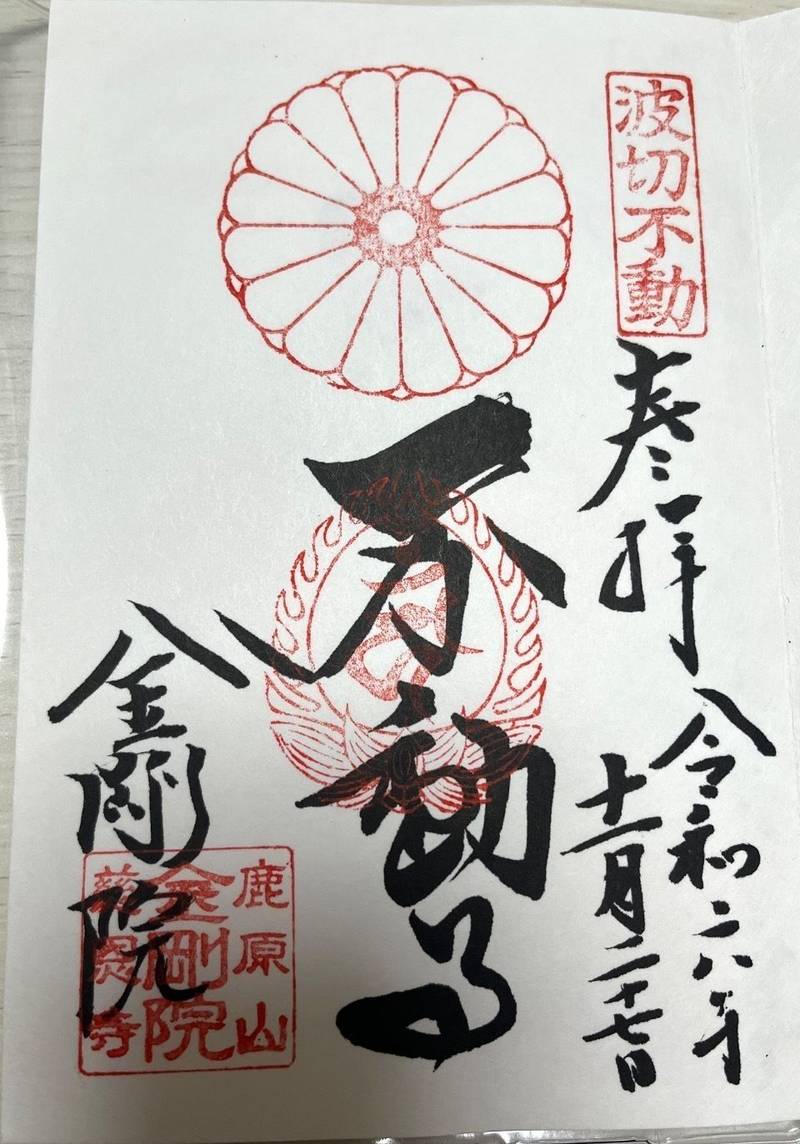 波切不動
奉拝
令和六年
十一月二十七日
不動尊
金剛院
鹿原山
金剛院
慈恩寺